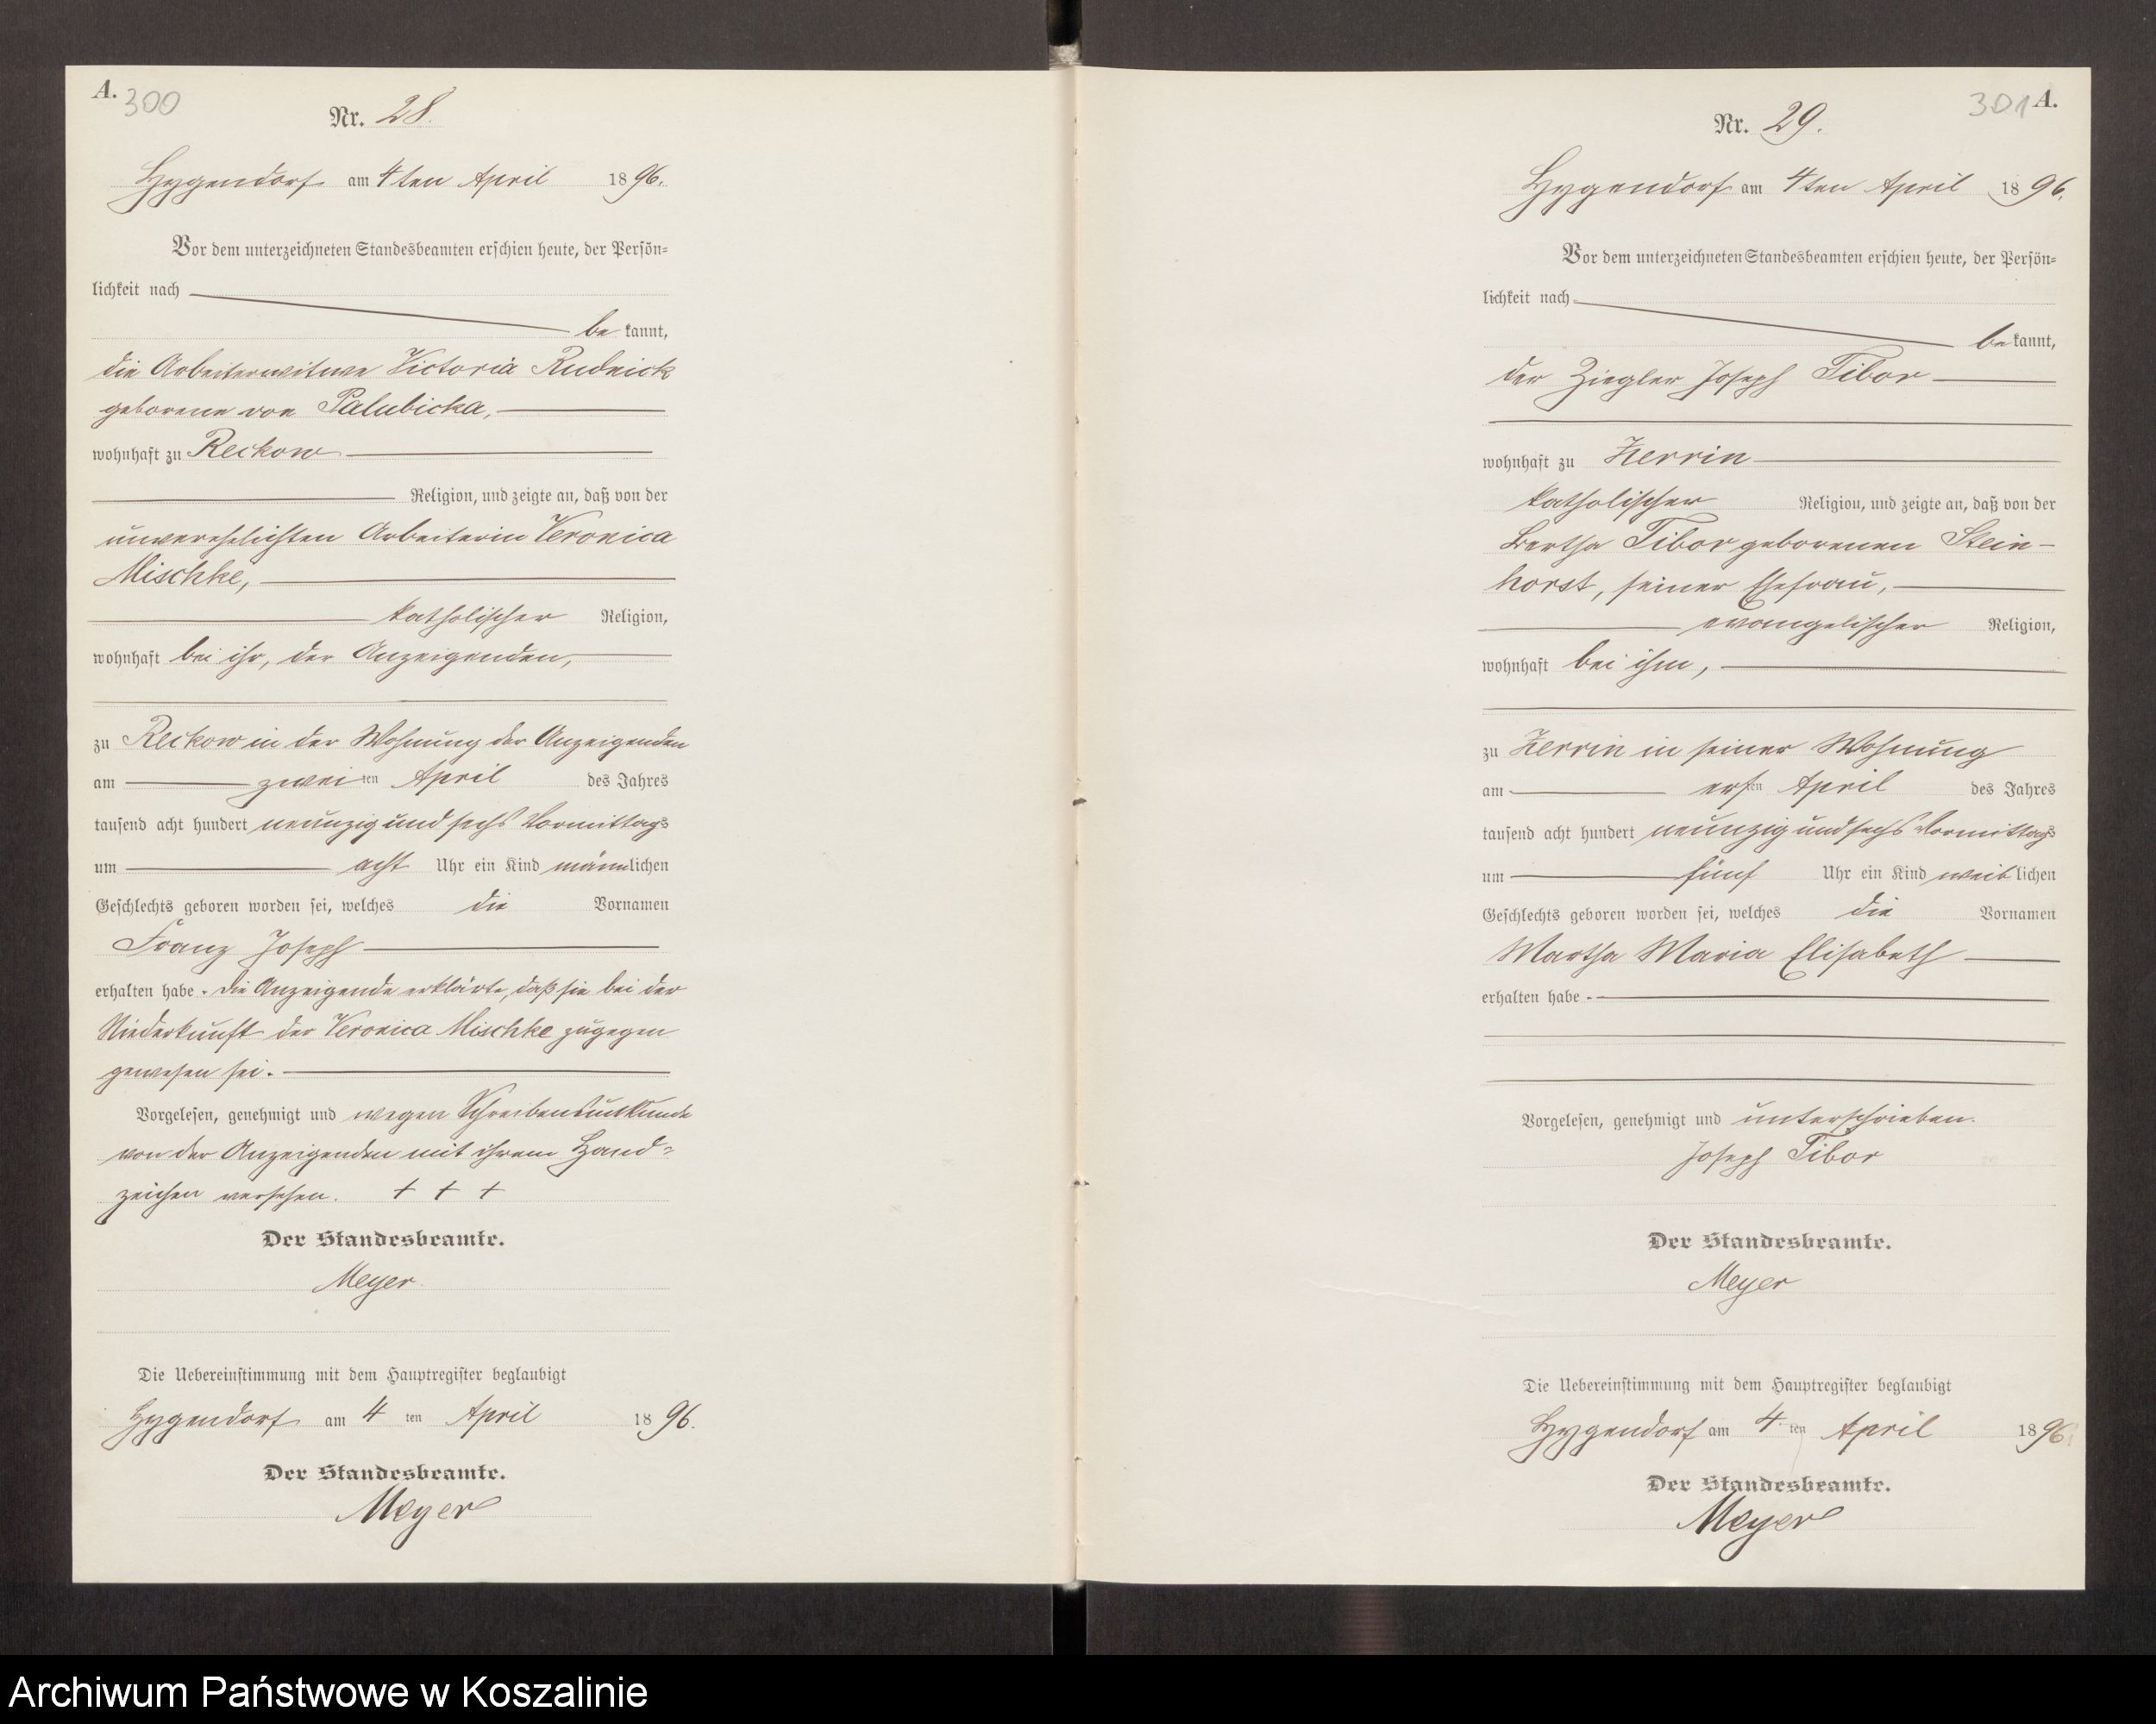 A.
300
Nr. 28.
Hygendorf am 4ten April 1896.
Vor dem unterzeichneten Standesbeamten erschien heute, der Persön=
lichkeit nach
be kannt,
die Arbeiterwitwe Victoria Rudnick
geborene von Palubicka,
wohnhaft zu Reckow
Religion, und zeigte an, daß von der
unverehelichten Arbeiterin Veronica
Mischke,
katholischer Religion,
wohnhaft bei ihr, der Anzeigenden,
zu Reckow in der Wohnung der Anzeigenden
am zweiten April des Jahres
tausend acht hundert neunzig und sechs Vormittags
um acht Uhr ein Kind männlichen
Geschlechts geboren worden sei, welches die Vornamen
Franz Joseph
erhalten habe. Die Anzeigende erklärte, daß sie bei der
Niederkunft der Veronica Mischke zugegen
gewesen sei.
Vorgelesen, genehmigt und wegen Schreibensunkunde
von der Anzeigenden mit ihrem Hand=
zeichen versehen. + + +
Der Standesbeamte.
Meyer.
Die Uebereinstimmung mit dem Hauptregister beglaubigt
Hygendorf am 4 ten April 1896.
Der Standesbeamte.
Meyer
301 A.
Nr. 29.
Hygendorf am 4ten April 1896.
Vor dem unterzeichneten Standesbeamten erschien heute, der Persön=
lichkeit nach
be kannt,
der Ziegler Joseph Tibor
wohnhaft zu Zerrin
katholischer Religion, und zeigte an, daß von der
Bertha Tibor geborenen Stein-
horst, seiner Ehefrau,
evangelischer Religion,
wohnhaft bei ihm,
zu Zerrin in seiner Wohnung
am ersten April des Jahres
tausend acht hundert neunzig und sechs Vormittags
um fünf Uhr ein Kind weiblichen
Geschlechts geboren worden sei, welches die Vornamen
Martha Maria Elisabeth
erhalten habe.
Vorgelesen, genehmigt und unterschrieben.
Joseph Tibor
Der Standesbeamte.
Meyer
Die Uebereinstimmung mit dem Hauptregister beglaubigt
Hygendorf am 4. ten April 1896
Der Standesbeamte.
Meyer
Archiwum Państwowe w Koszalinie